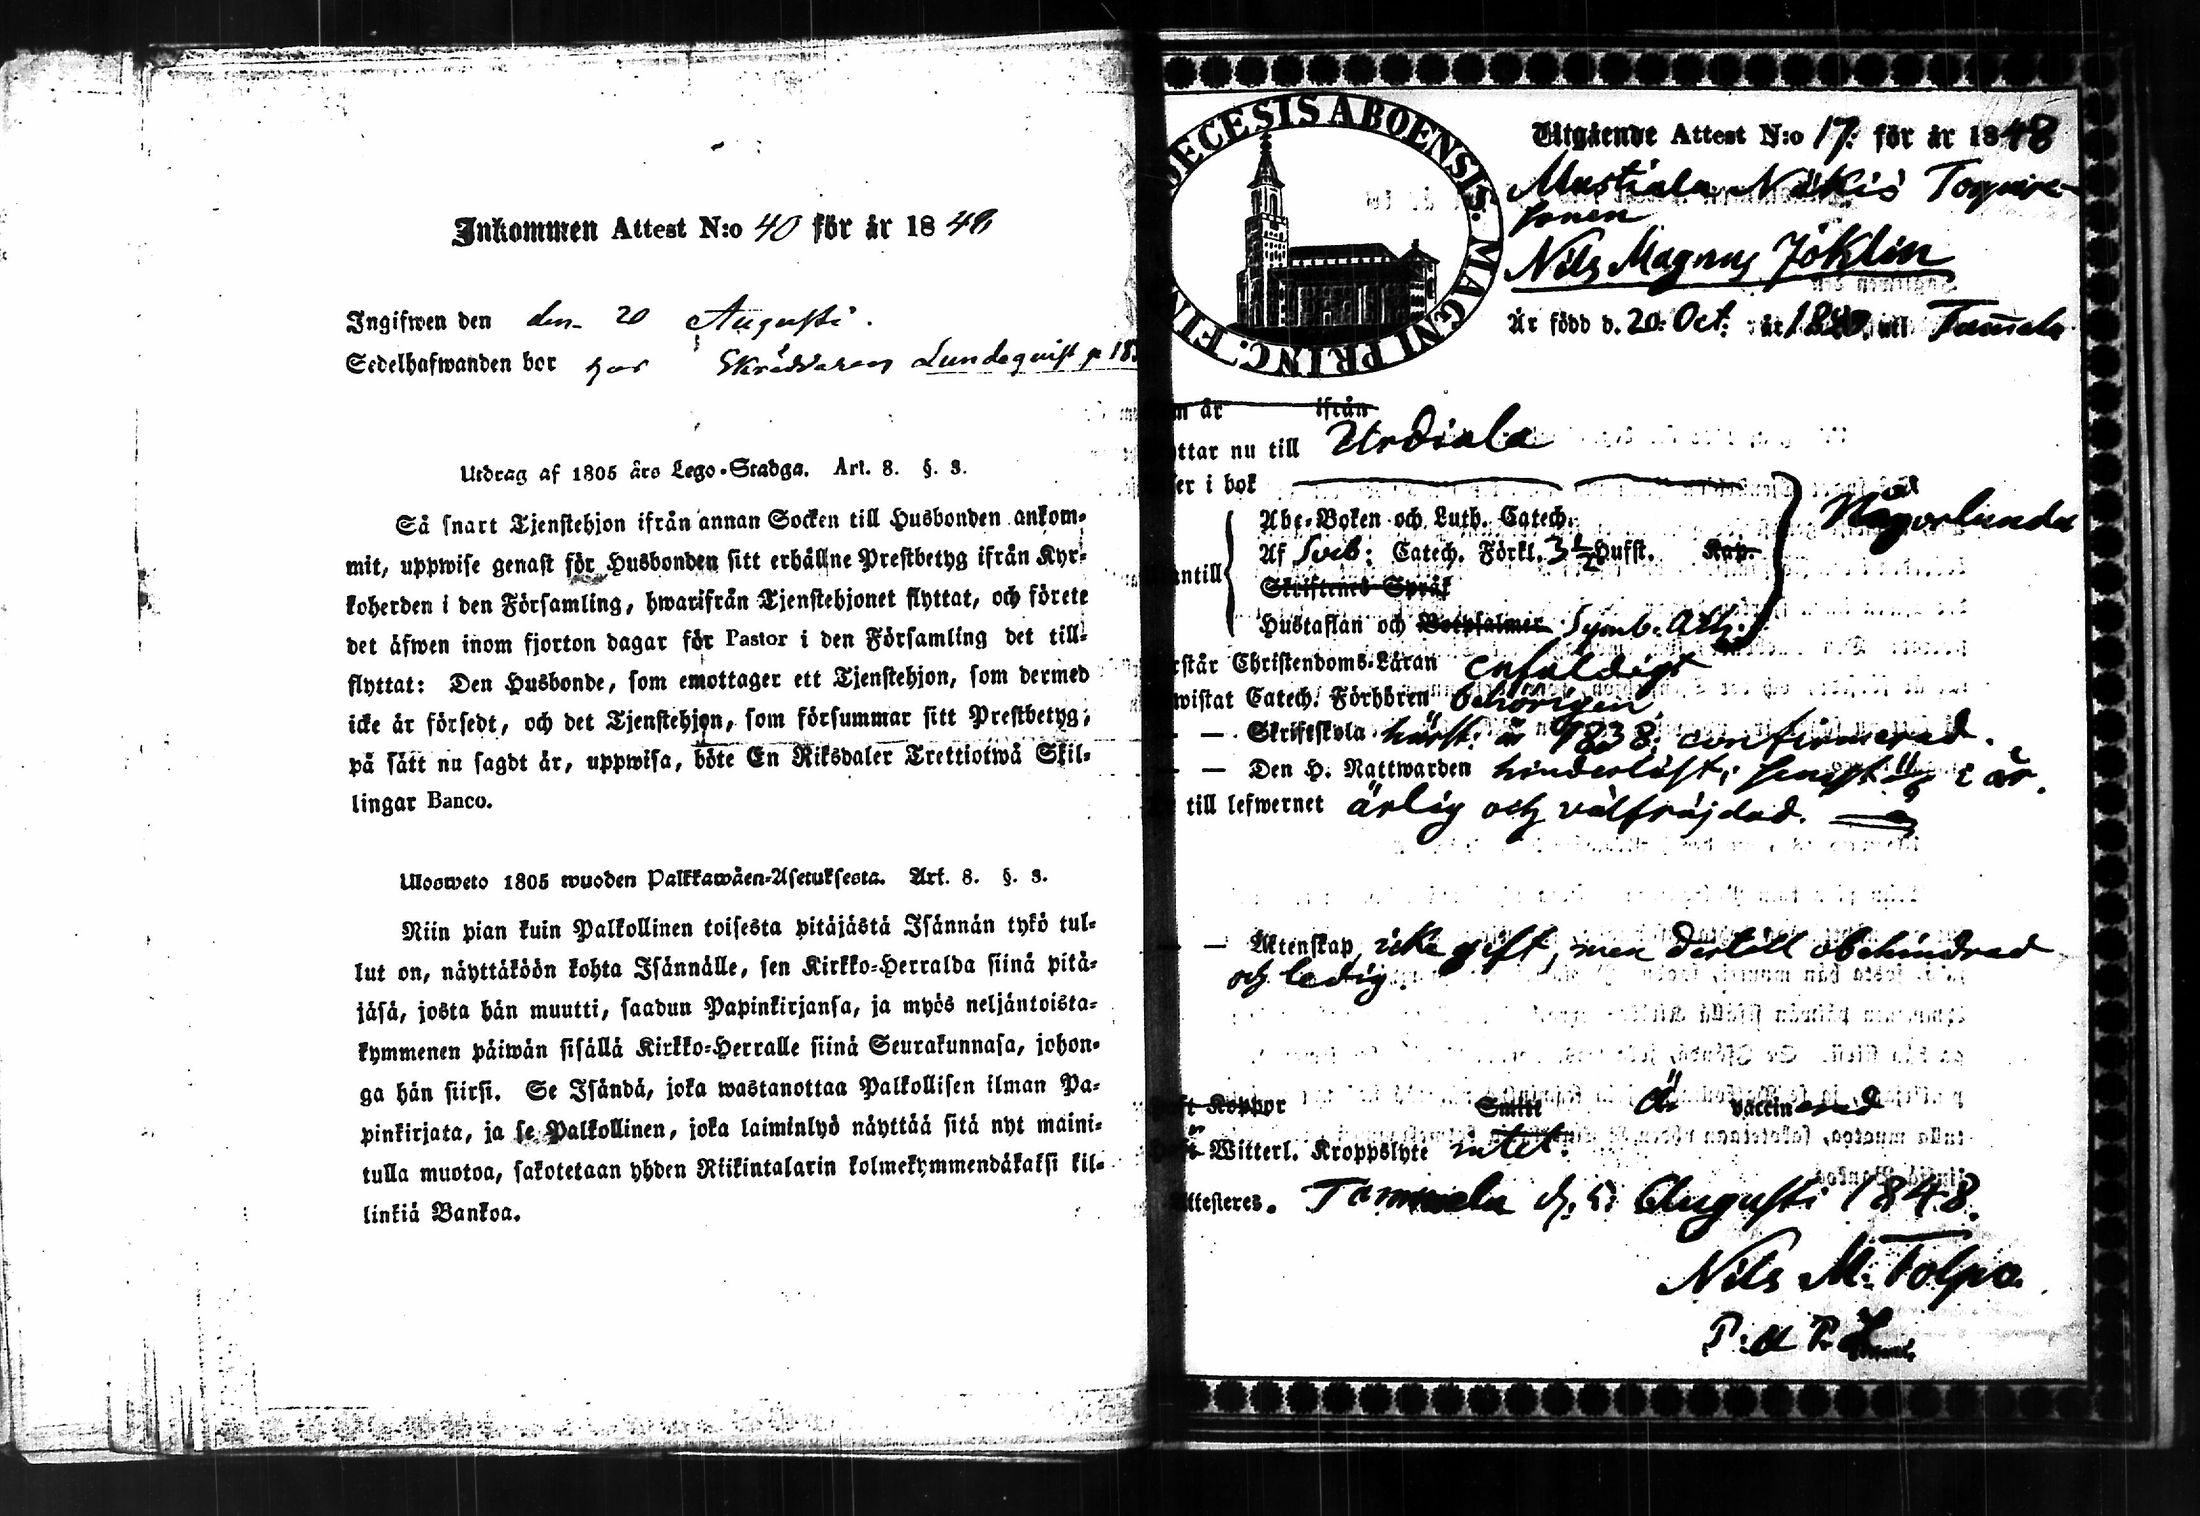 Inkommen Attest N:o 40 för år 1848
Ingifwen den den 20 Augusti.
Sedelhafwanden bor hos Skräddaren Lundeqvist p. 183
Utdrag af 1805 års Lego-Stadga. Art. 8. §. 3.
Så snart Tjenstehjon ifrån annan Socken till Husbonden ankom-
mit, uppwise genast för Husbonden sitt erhållne Prestbetyg ifrån Kyr-
koherden i den Församling, hwarifrån Tjenstehjonet flyttat, och förete
det äfwen inom fjorton dagar för Pastor i den Församling det till-
flyttat: Den Husbonde, som emottager ett Tjenstehjon, som dermed
icke är försedt, och det Tjenstehjon, som försummar sitt Prestbetyg,
på sätt nu sagdt är, uppwisa, böte En Riksdaler Trettiotwå Skil-
lingar Banco.
Ulosweto 1805 wuoden Palkkawäen-Asetuksesta. Art. 8. §. 3.
Niin pian kuin Palkollinen toisesta pitäjästä Isännän tykö tul-
lut on, näyttäköön kohta Isännälle, sen Kirkko-Herralda siinä pitä-
jäsä, josta hän muutti, saadun Papinkirjansa, ja myös neljäntoista-
kymmenen päiwän sisällä Kirkko-Herralle siinä Seurakunnasa, johon-
ga hän siirsi. Se Isändä, joka wastanottaa Palkollisen ilman Pa-
pinkirjata, ja se Palkollinen, joka laiminlyö näyttää sitä nyt maini-
tulla muotoa, sakotetaan yhden Riikintalarin kolmekymmendäkaksi kil-
linkiä Bankoa.
DECESIS ABOENSIS. MAGNI PRINC. FIN
Utgående Attest N:o 17. för år 1848
Mustiala Näkis Torpare-
sonen
Nils Magnus Jöklin
Är född d. 20. Oct. år uti Tammela
n år ifrån
ttar nu till Urdiala
er i bok
Nagorlunda
Abc-Boken och Luth. Catech.
Af Sveb: Catech. Förkl. 3 1/2 Hufst. Kap.
antill
Skriftenes Språk
Hustaflan och Botpsalmer Symb. Ath.
rstår Christendoms-Läran enfaldigt
wistat Catech. Förhören behörigen
— — Skriftskola härst. å 1838, confirmerad.
— — Den H. Nattwarden hinderlöst, senast i år.
till lefwernet ärlig och välfräjdad.
— — Äktenskap icke gift, men dertill obehindrad
och ledig.
ft Koppor Smitt Är vaccinerad
Witterl. Kroppslyte intet.
ttesteres. Tammela d. 5 Augusti 1848.
Nils M. Tolpo